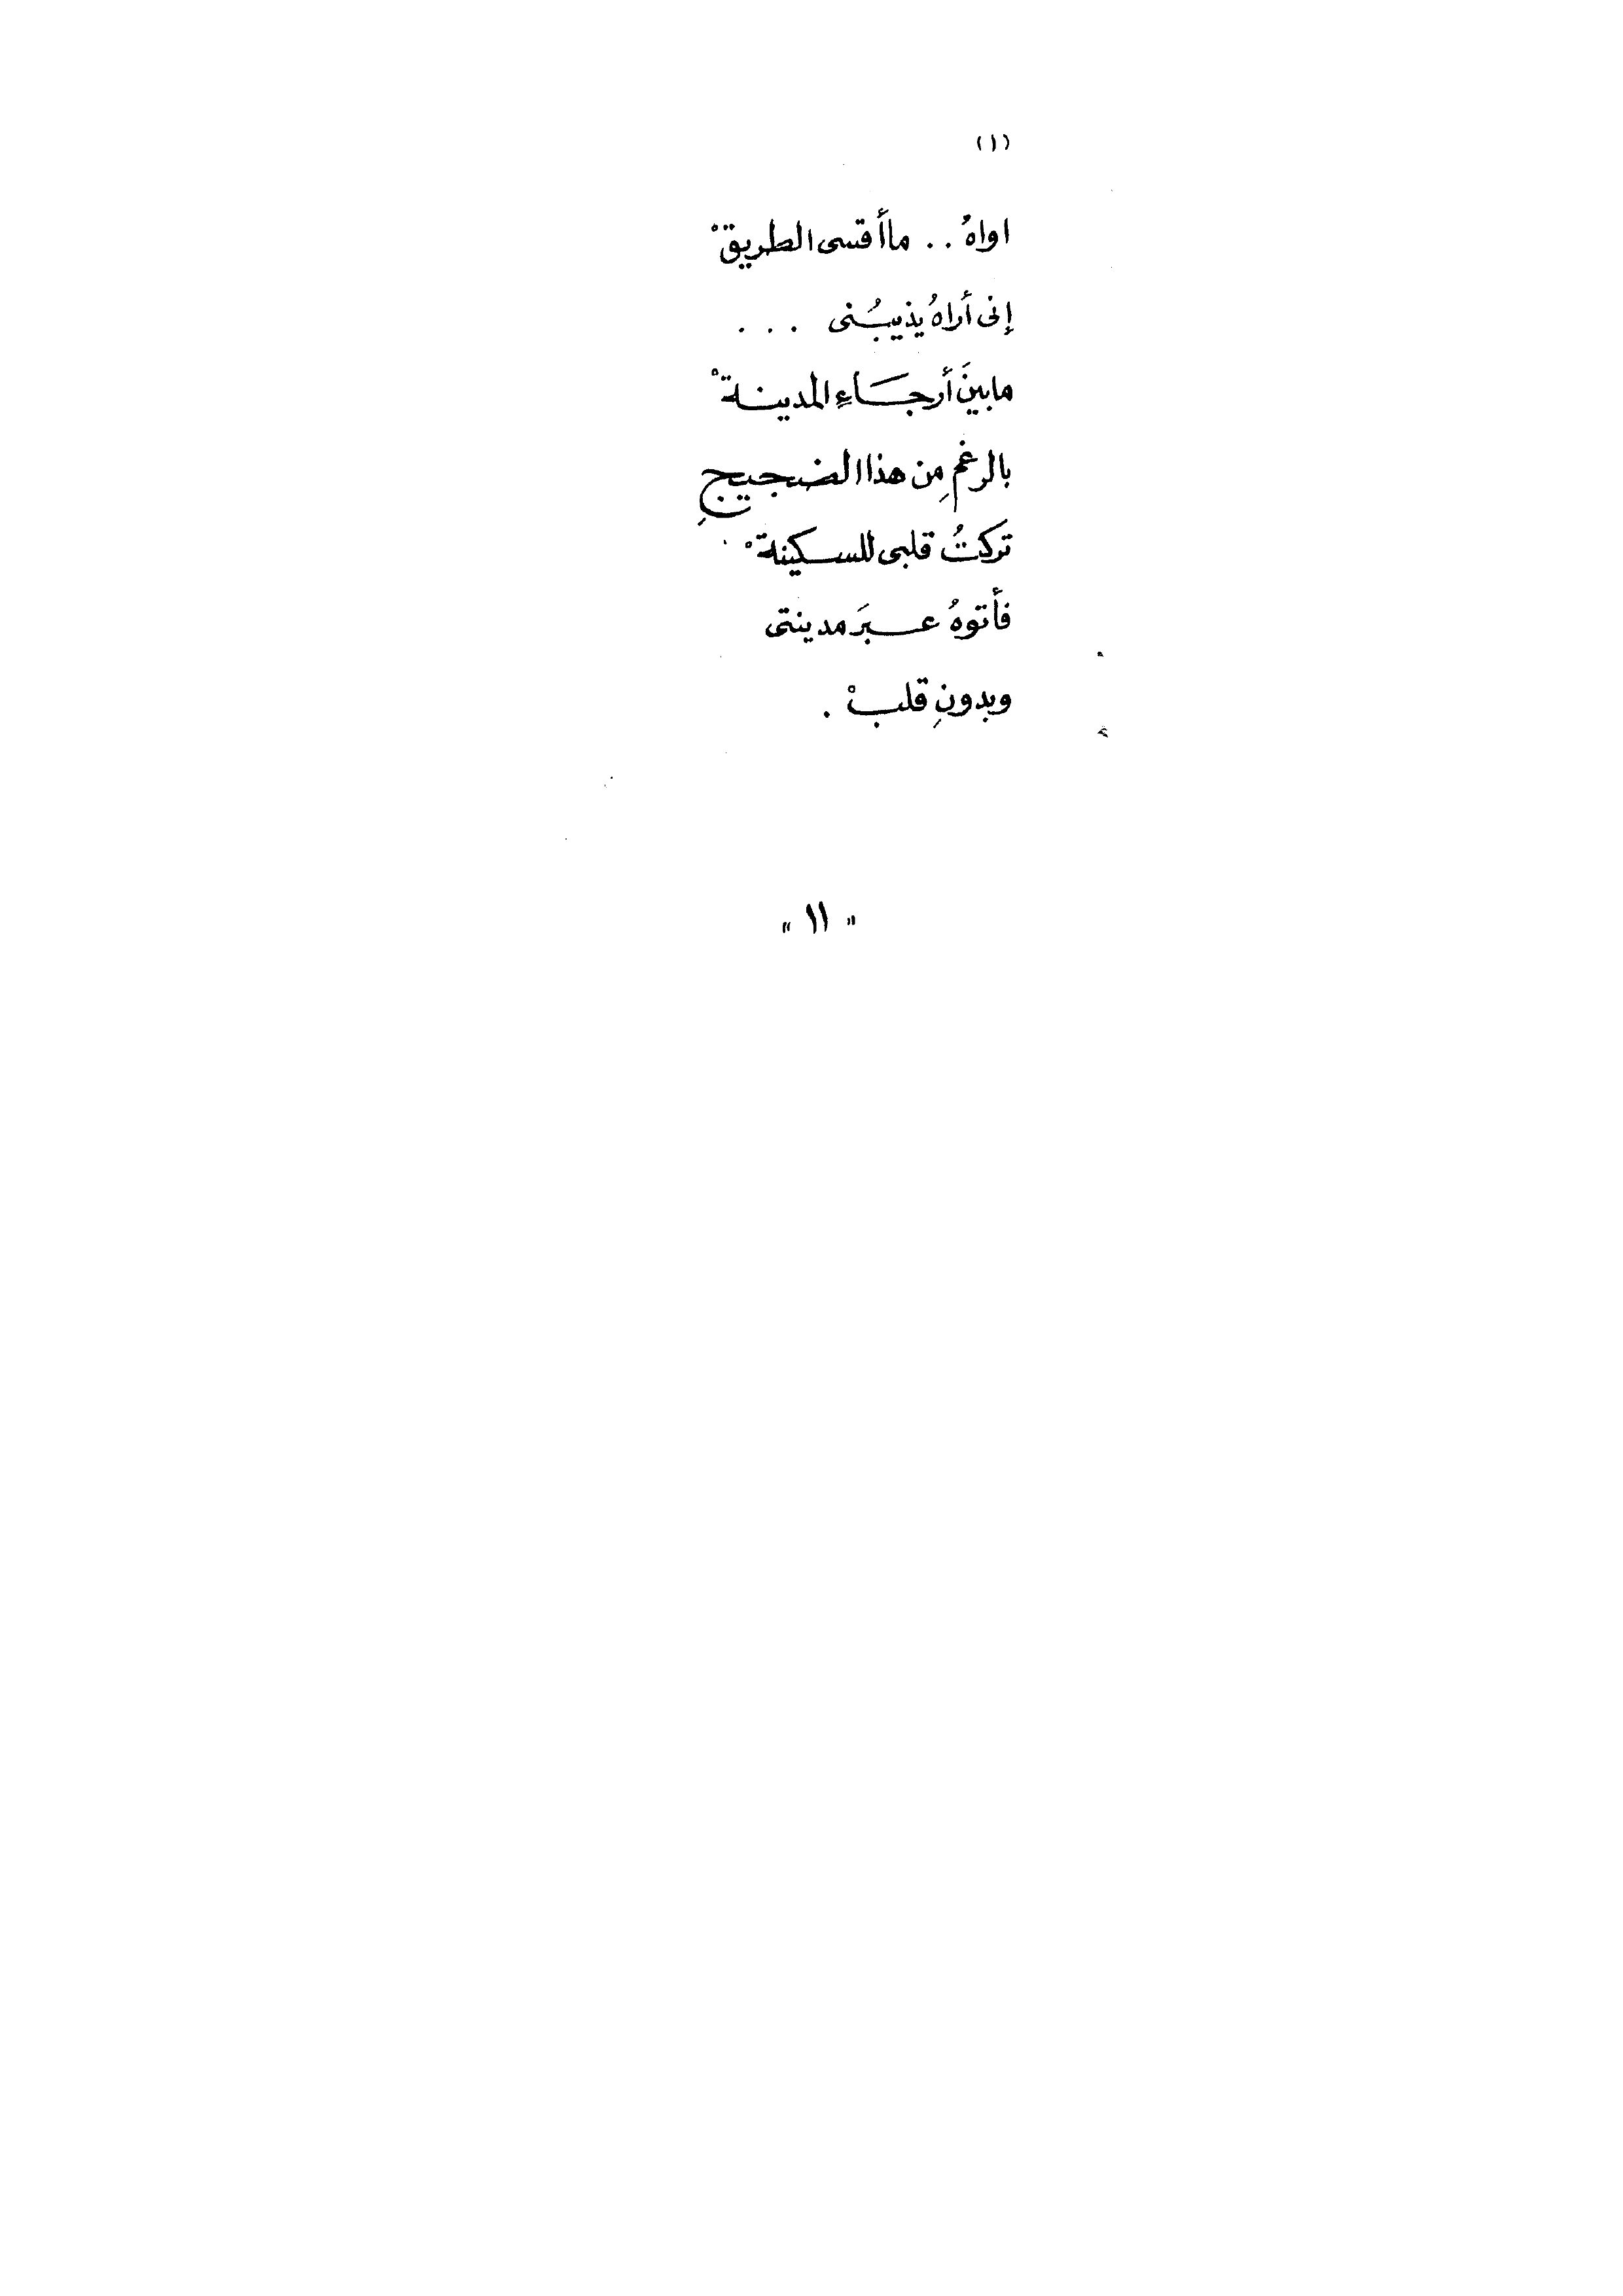 (١)
اواهُ . . ماأقسى الطريقْ
إنى أراهُ يذيبُنى . . .
مابينَ أرجَاءِ المدينةْ
بالرغمِ من هذا الضجيجِ
تركتُ قلبى للسكينةْ
فأتوهُ عبرَ مدينتى
وبدونِ قلبْ .
" ١١ "